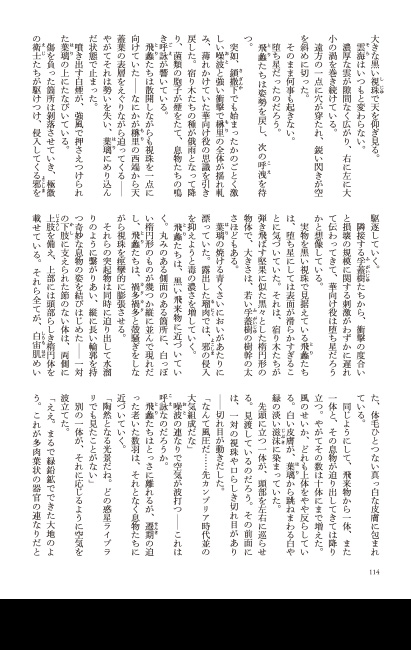 大きな黒い視珠で天を仰ぎ見る。
雲海はいつもと変わらない。
濃厚な雲が隙間なく広がり、右に左に大
小の渦を巻き続けている。
遠方の一点に穴が穿たれ、鋭い閃きが空
を斜めに切った。
そのまま何事も起きない。
堕ち星だったのだろう。
飛蠡たちは姿勢を戻し、次の呼洩を待
つ。
突如、鎖撒下でも始まったかのごとく激
しい噪波と強い衝撃で欅里の全体が揺れ軋
み、薄れかけていた華向け役の思識を引き
戻した。宿り木たちの種が俄雨となって降
り、菌類の胞子が煙をたて、息物たちの鳴
き呼詠が響いている。
飛蠡たちは散開しながらも視珠を一点に
向けていた――なにかが欅里の西端から天
蓋葉の表層をえぐりながら迫ってくる――
やがてそれは勢いを失い、葉璃にめり込ん
だ状態で止まった。
噴き出す白煙が、強風で押さえつけられ
た葉璃の上にたなびいている。
傷を負った箇所は剥落させていき、極微
の衛士たちが駆けつけ、侵入してくる邪を
駆逐していく。
隣接する守蓋樹たちから、衝撃の度合い
と損壊の規模に関する刺激がわずかに遅れ
て伝わってきて、華向け役は堕ち星だろう
かと想像している。
実物を黒い視珠で見据えている飛蠡たち
は、堕ち星にしては表面が滑らかすぎるこ
とに気づいていた。それは、宿り木たちが
弾き飛ばす莢果に似た黒々とした楕円形の
物体で、大きさは、若い守蓋樹の樹幹の太
さほどもある。
葉璃の焼ける青くさいにおいがあたりに
漂っていた。露出した瑠肉では、邪の侵入
を抑えようと毒の濃さを増していく。
飛蠡たちは、黒い飛来物に近づいてい
く。丸みのある側面のある箇所に、白っぽ
い楕円形のものが幾つか縦に並んで現れだ
し、飛蠡たちは、禍多禍多と殻騒ぎをしな
がら視珠を痙攣的に膨張させる。
それらの突起物は同時に迫り出して水溜
りのように繋がりあい、縦に長い輪郭を持
つ奇妙な息物の姿を結びはじめた――一対
の下肢に支えられた節のない体は、両側に
上肢を備え、上部には頭部らしき楕円体を
載せている。それら全てが、白宙肌めい
た、体毛ひとつない真っ白な皮膚に包まれ
ている。
同じようにして、飛来物から一体、また
一体と、その息物が迫り出してきては降り
立つ。やがてその数は十体にまで増えた。
風のせいか、どれも上体をやや反らしてい
る。白い皮膚が、葉璃から跳ねまわる白や
緑の淡い滋沫に染まっていた。
先頭に立つ一体が、頭部を左右に巡らせ
る。見渡しているのだろう。その前面に
は、一対の視珠や口らしき切れ目があり
――切れ目が動きだした。
「なんて風圧だ……先カンブリア時代並の
大気組成だな」
噪波の連なりで空気が波打つ――これは
呼詠なのだろうか。
飛蠡たちはとっさに離れるが、遷期の迫
った老いた数羽は、それとなく息物たちに
近づいていく。
「陶然となる光景だね。どの惑星ライブラ
リでも見たことがない」
別の一体が、それに応じるように空気を
波立てた。
「ええ。まるで緑鉛鉱でできた大地のよ
う。これが多肉葉状の器官の連なりだと
114